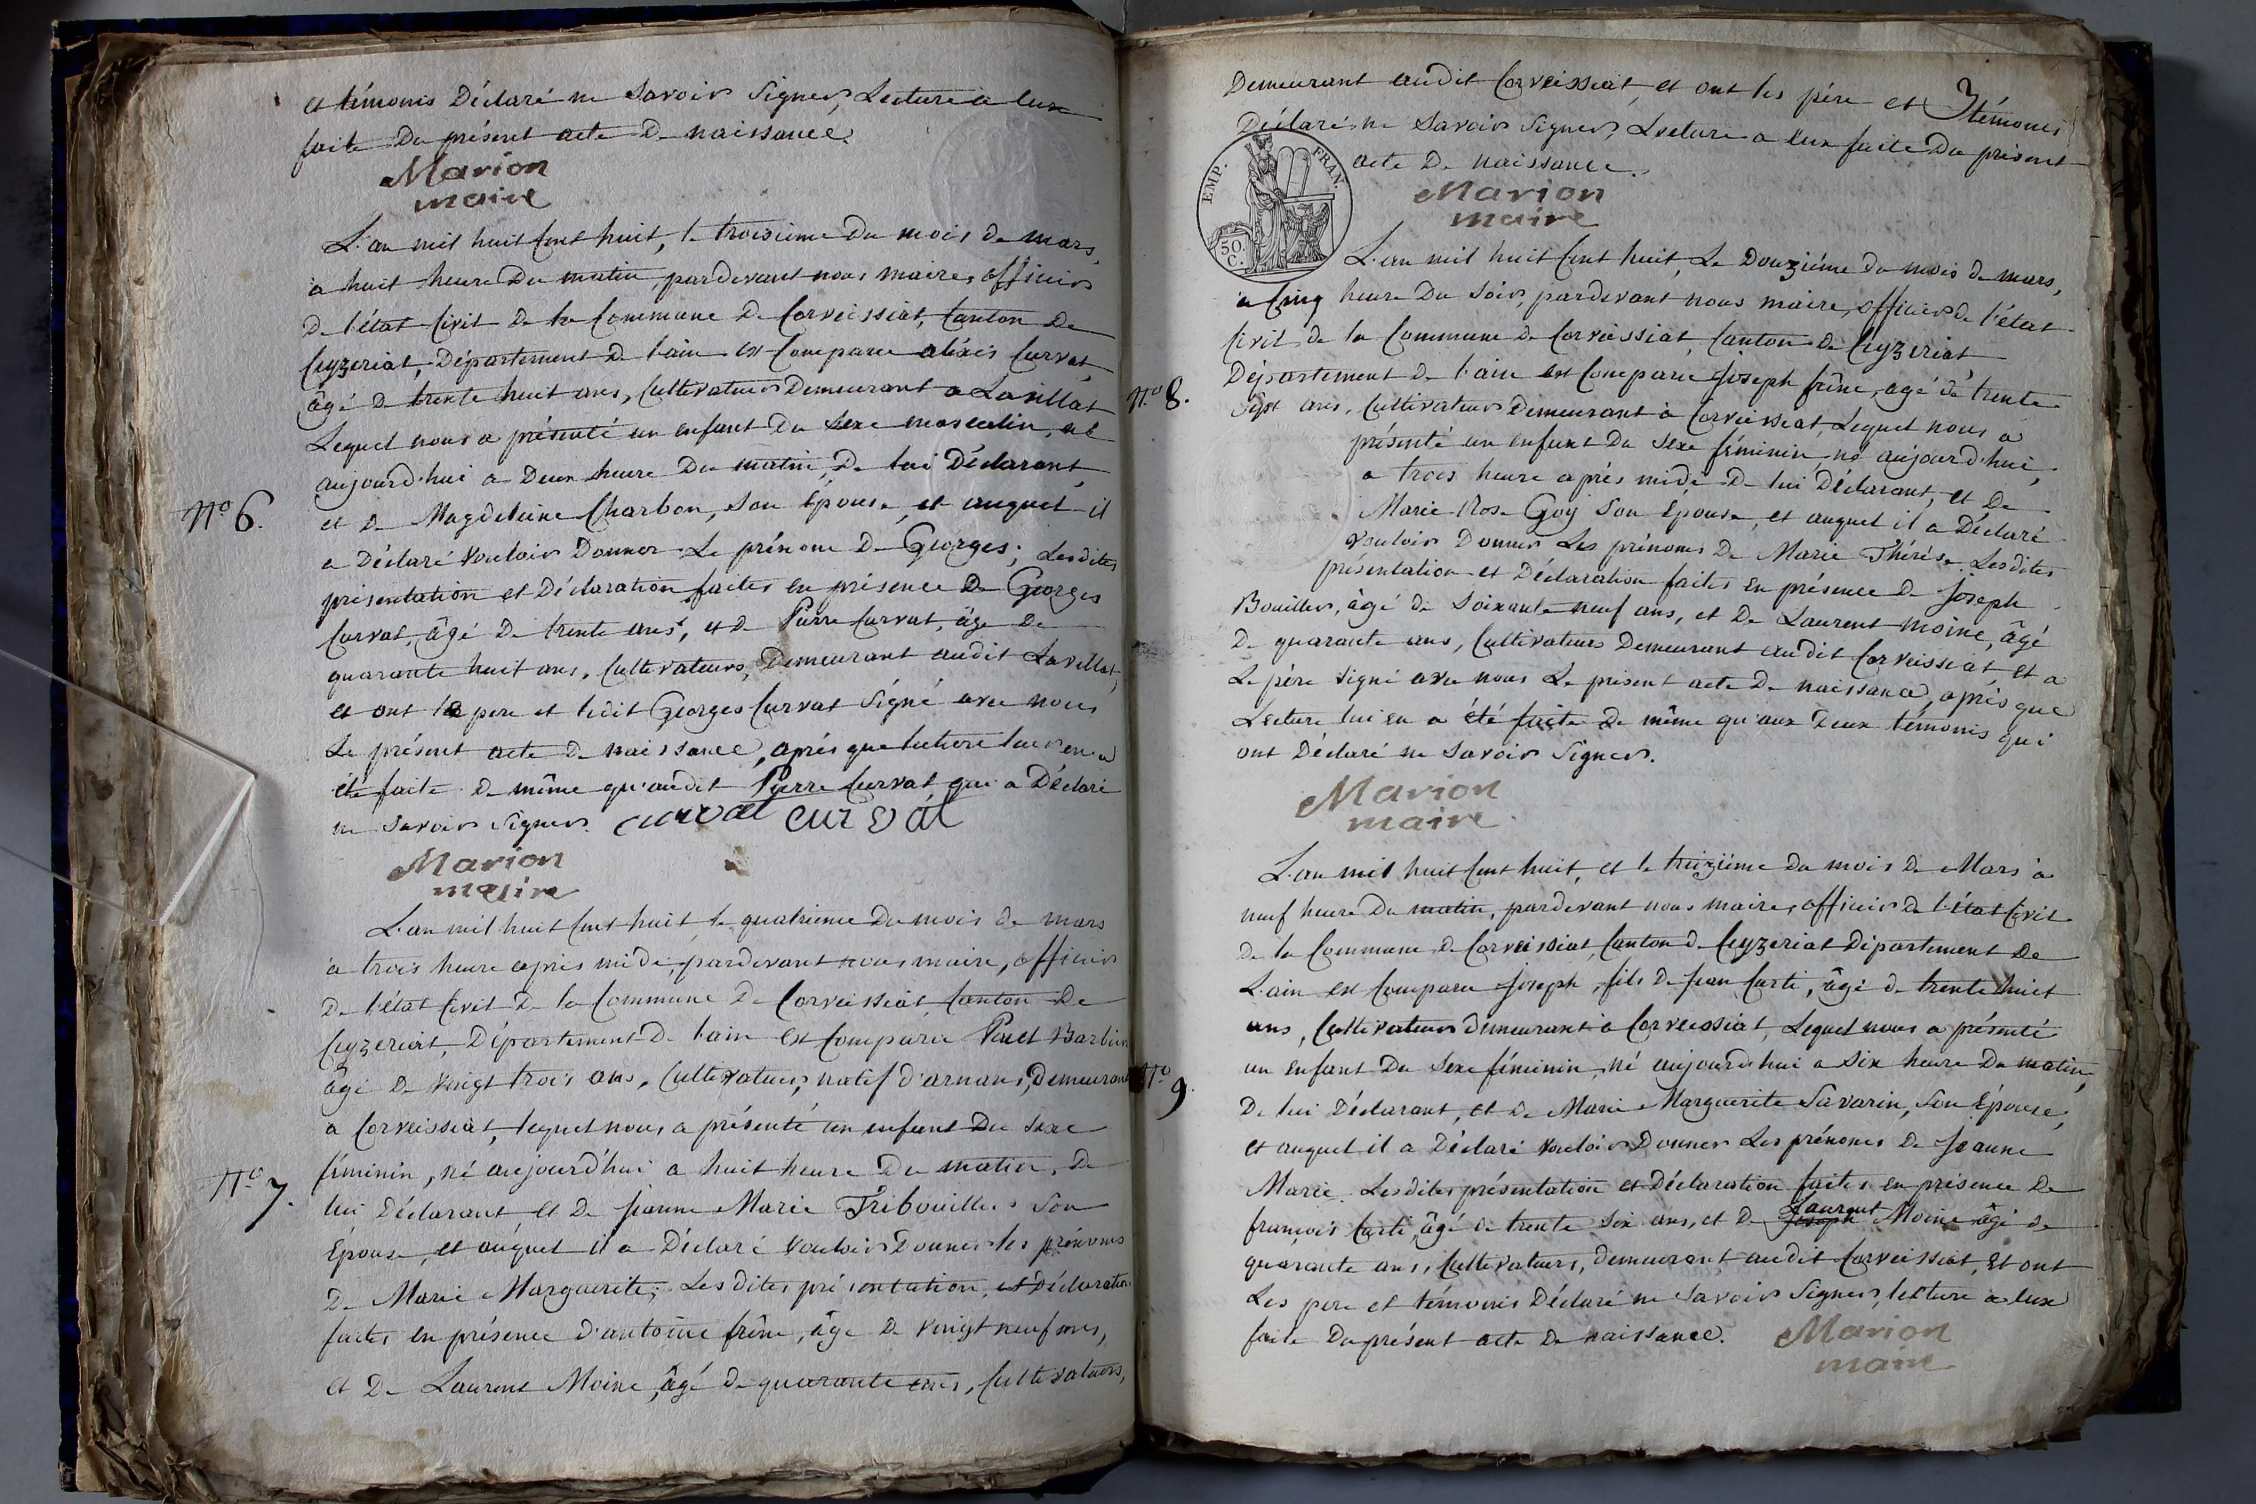 et témoins Déclaré ne Savoir Signer, Lecture a eux
faite Du présent acte De naissance.
Marion
maire
L'an mil huit Cent huit, le troisieme Du mois de mars,
à huit heure Du matin, pardevant nous maire, officier
De l'état Civil De la Commune De Corveissiat, Canton De
Ceyzeriat, Département De l'ain est Comparu aléxis Curvat,
âgé De trente huit ans, Cultivateur Demeurant a Lavillat
Lequel nous a présenté un enfant Du Sexe masculin, né
aujourd'hui a Deux heure Du matin, De lui Déclarant,
N.o 6.
et De Magdeleine Charbon, Son Epouse, et auquel il
a Déclaré vouloir Donner Le prénom De Georges; Lesdites
présentation et Déclaration faites en présence De Georges
Curvat, âgé De trente ans, et De Pierre Curvat, âgé De
quarante huit ans, Cultivateurs, Demeurant audit Lavillat,
et ont le pere et ledit Georges Curvat Signé avec nous
Le présent acte De naissance, après que lecture leur en a
été faite De même qu'audit Pierre Curvat qui a Déclaré
ne Savoir Signer. curvat curvat
Marion
maire
L'an mil huit Cent huit, le quatrieme Du mois de mars
à trois heure après midi, pardevant nous maire, officier
De l'état Civil De la Commune De Corveissiat, Canton De
Ceyzeriat, Département De l'ain est Comparu Barbier
âgé De vingt trois ans, Cultivateur, natif d'arnans, Demeurant
a Corveissiat, lequel nous a présenté un enfant Du Sexe
féminin, né aujourd'hui a huit heure Du matin, De
N.o 7.
lui Déclarant, et De jeanne Marie Tribouillier Son
Epouse, et auquel il a Déclaré vouloir Donner les prénoms
De Marie Marguerite; Les dites présentation, et Déclaration
faites en présence d'antoine frêne, âgé De vingt neuf ans,
et De Laurent Moine, âgé de quarante ans, Cultivateurs,
Demeurant audit Corveissiat, et ont les père et témoins
Déclaré ne Savoir Signer, Lecture a eux faite Du présent
acte De naissance.
EMP. FRAN.
50.
C.
Marion
maire
L'an mil huit Cent huit, Le Douzième du mois de mars,
a Cinq heure Du Soir, pardevant nous maire, officier de l'état
Civil de la Commune De Corveissiat, Canton de Ceyzeriat
Département De l'ain est Comparu Joseph frêne, agé de trente
N.o 8.
Sept ans, Cultivateur Demeurant à Corveissiat, Lequel nous a
présenté un enfant Du Sexe féminin né aujourd'hui,
a trois heure après midi, De lui Déclarant, et De
Marie Rose Goÿ Son Epouse, et auquel il a Déclaré
vouloir Donner Les prénoms De Marie Thérése. Lesdites
présentation et Déclaration faites en présence De Joseph
Bouiller, âgé de Soixante neuf ans, et De Laurent Moine, âgé
De quarante ans, Cultivateurs Demeurant audit Corveissiat, et a
Le père Signé avec nous Le present acte De naissance, après que
Lecture lui en a été faite De même qu'aux Deux témoins qui
ont Déclaré ne Savoir Signer.
Marion
maire
L'an mil huit Cent huit, et le treizième du mois De Mars à
neuf heure Du matin, pardevant nous maire, officier De l'état Civil
de la Commune De Corveissiat, Canton De Ceyzeriat Département De
L'ain est Comparu Joseph, fils De jean Carti, âgé de trente huit
ans, Cultivateur demeurant à Corveissiat, Lequel nous a présenté
un enfant Du Sexe féminin, né aujourd'hui a Six heure Du matin,
N.o 9.
De lui Déclarant, et De Marie Marguerite Savarin, Son Epouse,
et auquel il a Déclaré vouloir Donner Les prénoms De Jeanne
Marie. Lesdites présentation et Déclaration faites en présence De
françois Carti, âgé de trente Six ans, et De Joseph Laurent Moine âgé de
quarante ans, Cultivateurs, demeurant audit Corveissiat, Et ont
Les pere et témoins Déclaré ne Savoir Signer, lecture a eux
faite Du présent acte De naissance.
Marion
maire